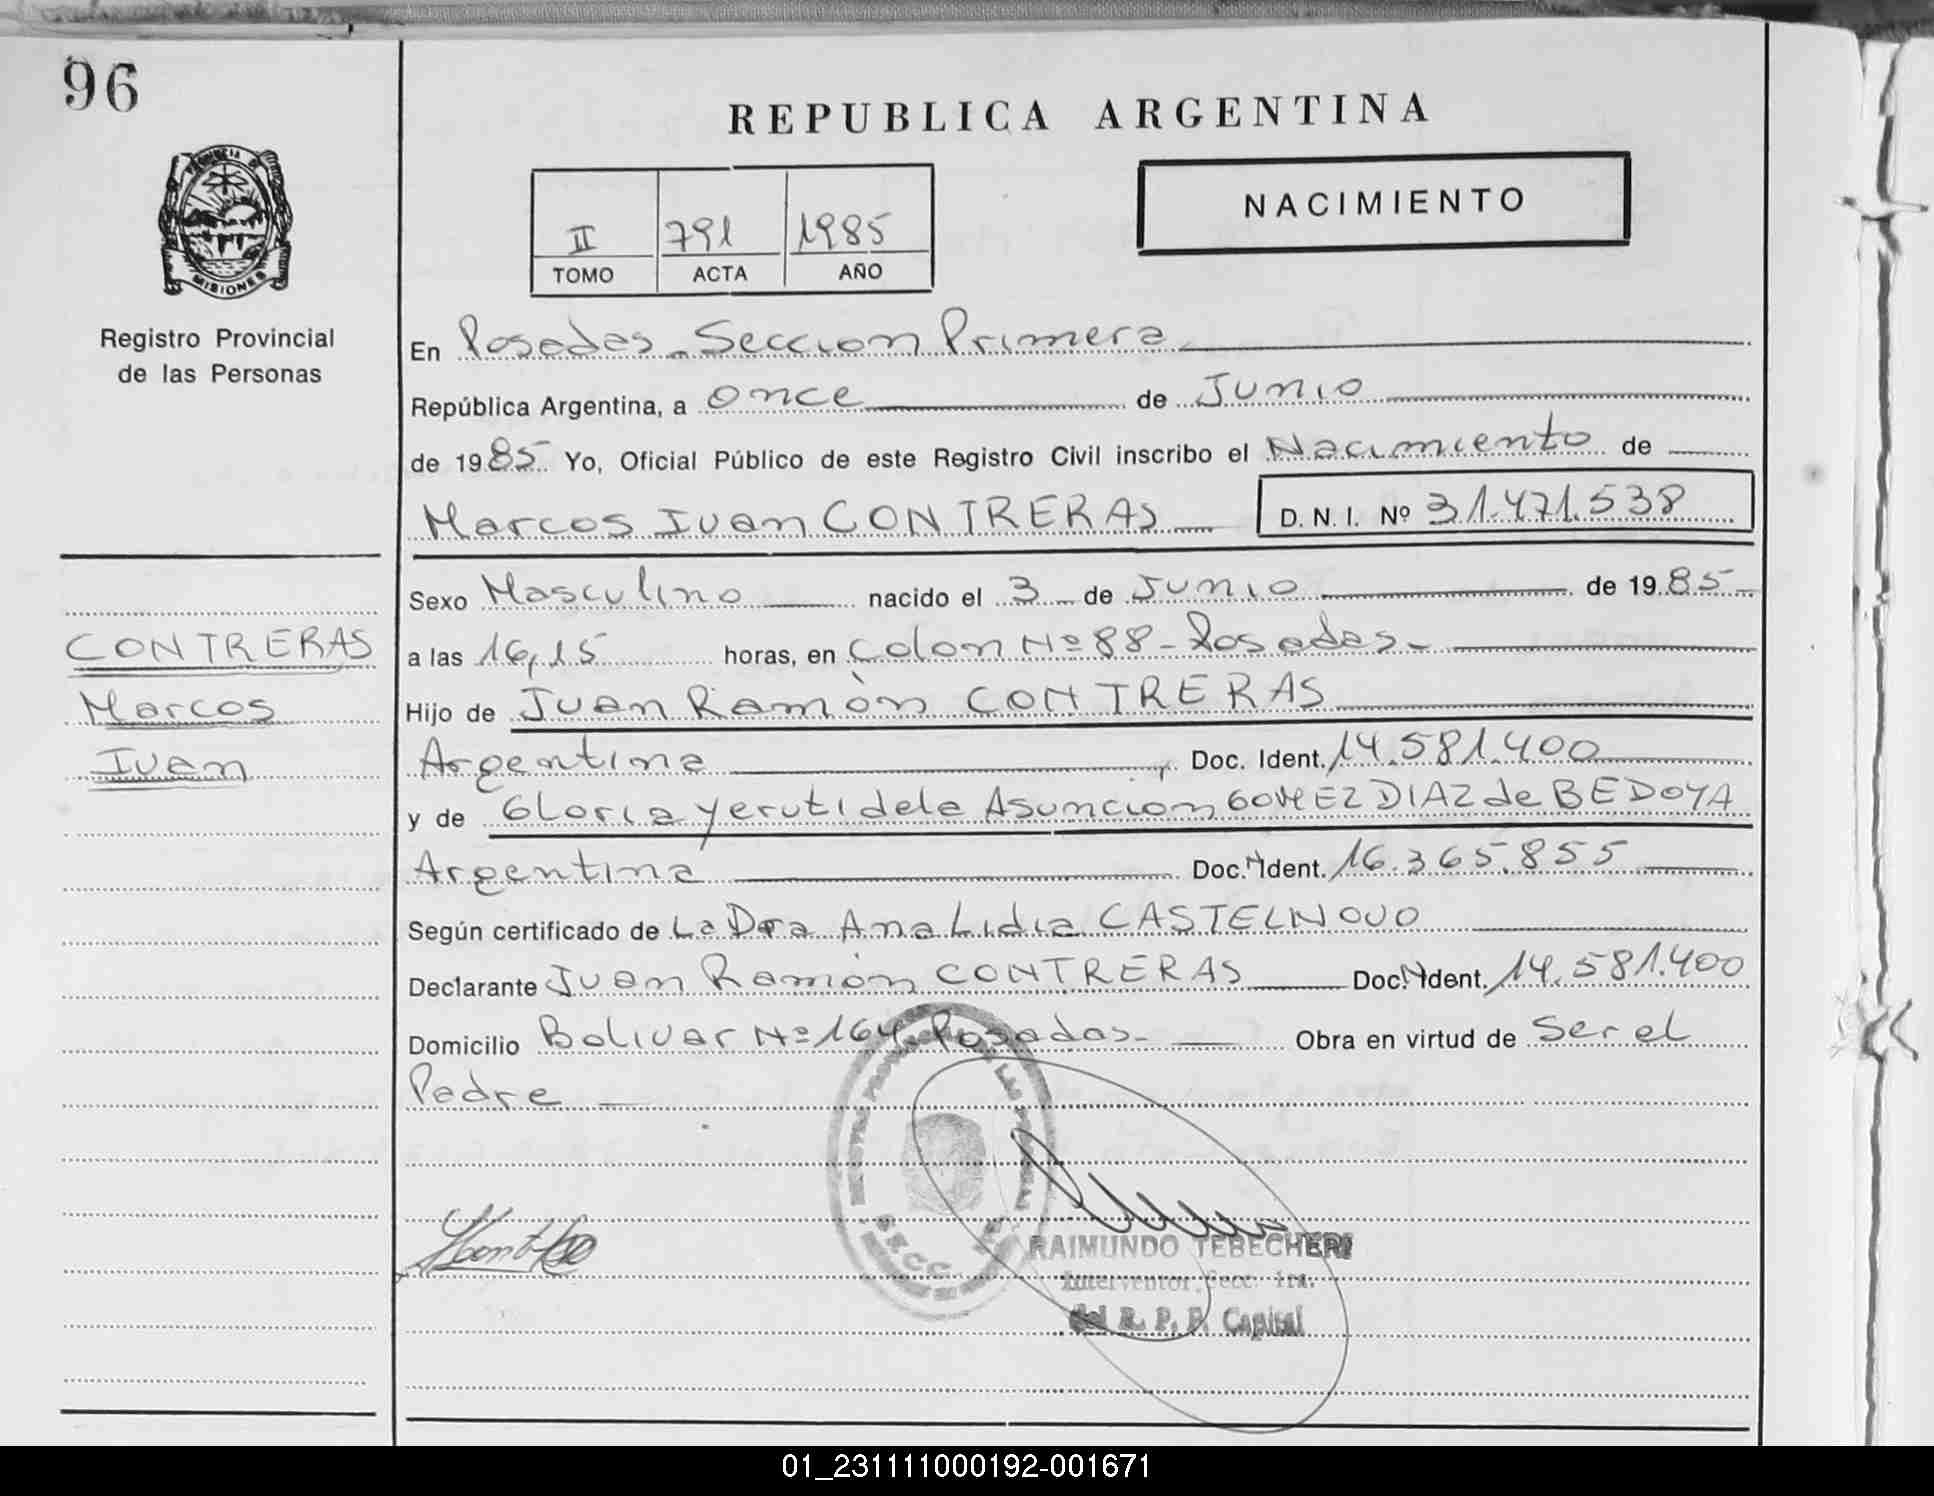 96
REPUBLICA ARGENTINA
PROVINCIA DE
MISIONES
Registro Provincial
de las Personas
II 791 1985
TOMO ACTA AÑO
NACIMIENTO
En Posadas - Seccion Primera
República Argentina, a once de Junio
de 1985 Yo, Oficial Público de este Registro Civil inscribo el Nacimiento de
Marcos Ivan CONTRERAS D. N. I. Nº 31.471.538
CONTRERAS
Marcos
Ivan
Sexo Masculino nacido el 3 de Junio de 1985 -
a las 16,15 horas, en Colon Nº 88 - Posadas -
Hijo de Juan Ramòn CONTRERAS
Argentina Doc. Ident. 14.581.400
y de Gloria Yeruti dela Asuncion GOMEZ DIAZ de BEDOYA
Argentina Doc. Ident. 16.365.855
Según certificado de La Dra Ana Lidia CASTELNOVO
Declarante Juan Ramón CONTRERAS Doc. Ident. 14.581.400
Domicilio Bolivar Nº 164 Posadas - Obra en virtud de Ser el
Padre
RAIMUNDO TEBECHERI
Interventor Secc. 1ra.
del R. P. P. Capital
01_231111000192-001671